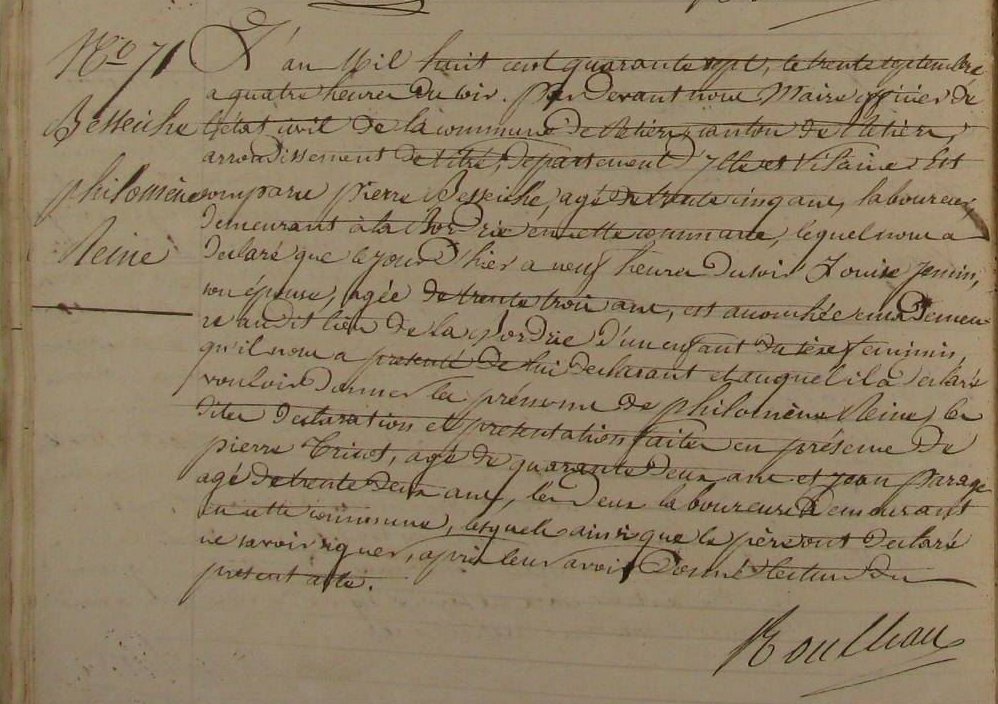 N.o 71
Besseiche
philomène
Reine
L'an Mil huit cent quarante sept, le trente septembre
a quatre heures du soir. Par devant nous Maire officier de
l'état civil de la commune de Retiers, canton de Retiers,
arrondissement de Vitré, département d'Ylle et Vilaine Est
comparu pierre Besseiche, agé de trente cinq ans, laboureur
demeurant à la Bordrie en cette commune, lequel nous a
declaré que le jour d'hier a neuf heures du soir Louise jemin,
son épouse, agée de trente trois ans, est accouchée en sa demeu-
re audit lieu de la Bordrie d'un enfant du sèxe feminin,
qu'il nous a presenté de lui declarant et auquel il a declaré
vouloir donner les prénoms de philomène Reine, les
dites declaration et presentation faites en présence de
pierre, agé de quarante deux ans et jean parage
agé de trente deux ans, les deux laboureurs demeurant
en cette commune, lesquels ainsi que le père ont declaré
ne savoir signer, après leur avoir donné lecture du
présent acte.